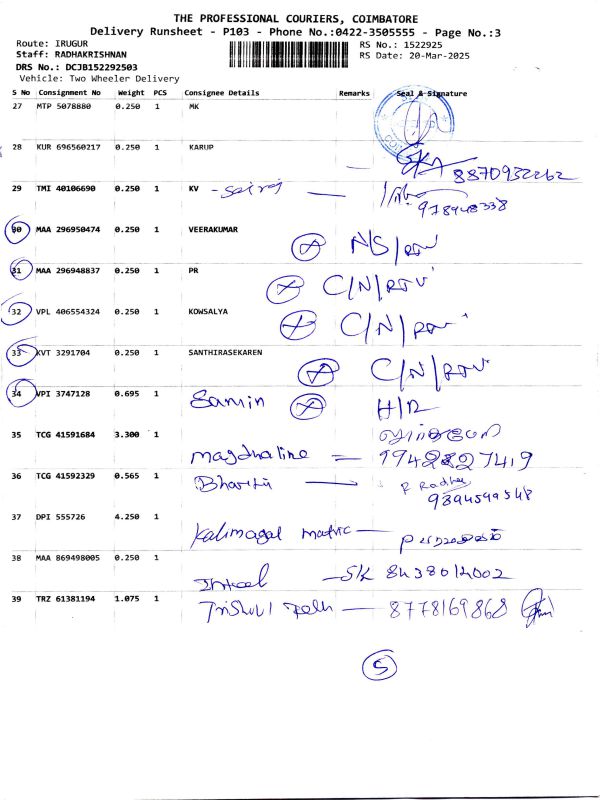 THE PROFESSIONAL COURIERS, COIMBATORE
Delivery Runsheet - P103 - Phone No.:0422-3505555 - Page No.:3
Route: IRUGUR
RS No.: 1522925
Staff: RADHAKRISHNAN
RS Date: 20-Mar-2025
DRS No.: DCJB152292503
Vehicle: Two Wheeler Delivery
S No Consignment No Weight PCS Consignee Details Remarks Seal & Signature
27 MTP 5078880 0.250 1 MK
28 KUR 696560217 0.250 1 KARUP
8870932262
29 TMI 40106690 0.250 1 KV - Sairaj
978948338
30 MAA 296950474 0.250 1 VEERAKUMAR
NS/RTV
31 MAA 296948837 0.250 1 PR
C/N/RTV
32 VPL 406554324 0.250 1 KOWSALYA
C/N/RTV
33 KVT 3291704 0.250 1 SANTHIRASEKAREN
C/N/RTV
34 VPI 3747128 0.695 1
35 TCG 41591684 3.300 1
Magdhaline
36 TCG 41592329 0.565 1
R Radha
9894599548
37 DPI 555726 4.250 1
Kalimagal matric
38 MAA 869498005 0.250 1
SK 8438014002
39 TRZ 61381194 1.075 1
8778169868
5